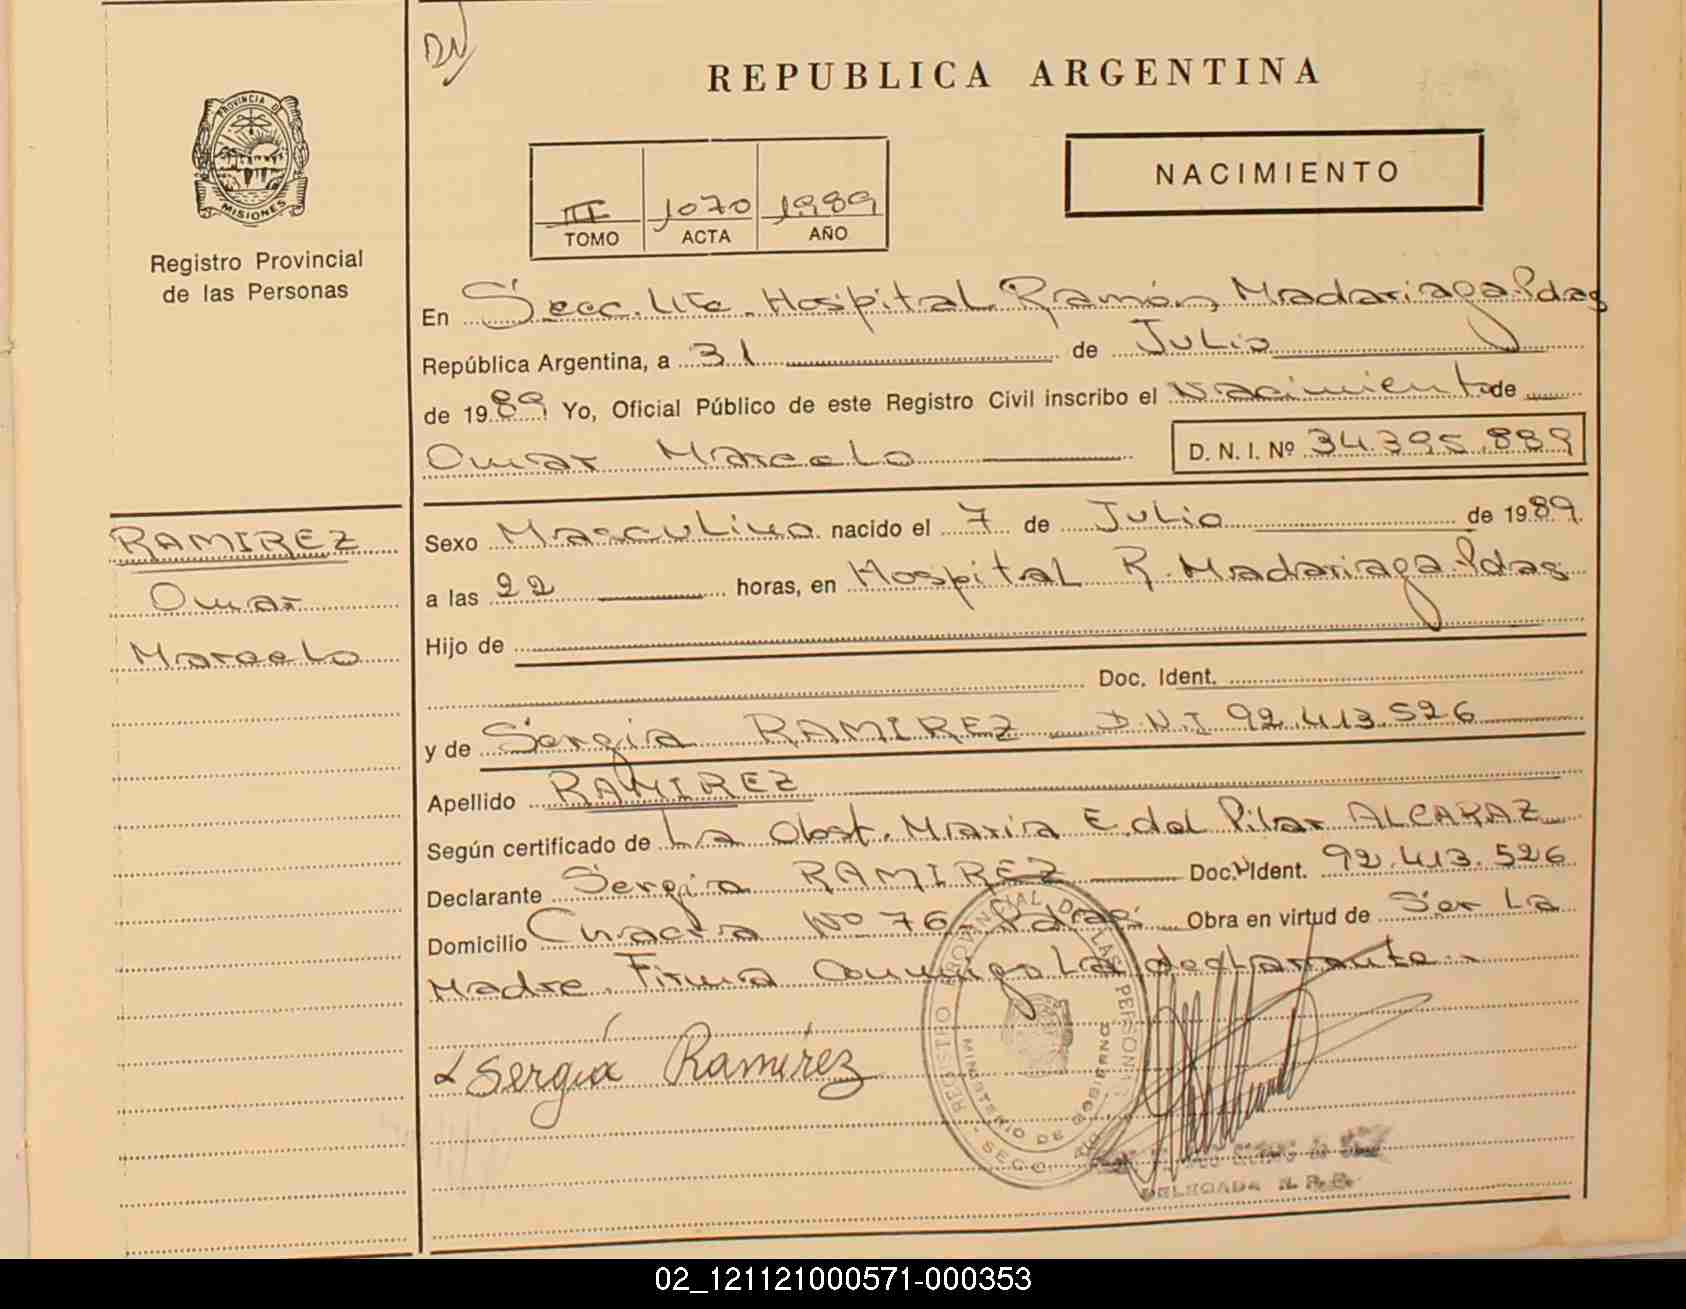 DN
REPUBLICA ARGENTINA
PROVINCIA DE
MISIONES
Registro Provincial
de las Personas
III 1070 1989
TOMO ACTA AÑO
NACIMIENTO
En Secc. Hospital Ramón Madariaga. Pdas
República Argentina, a 31 de Julio
de 1989 Yo, Oficial Público de este Registro Civil inscribo el Nacimiento de
Omar Marcelo D. N. I. Nº 34.395.889
RAMIREZ
Omar
Marcelo
Sexo Masculino nacido el 7 de Julio de 1989
a las 22 horas, en Hospital R. Madariaga. Pdas
Hijo de
Doc. Ident.
y de Sergia RAMIREZ D.N.I 92.413.526
Apellido RAMIREZ
Según certificado de La Obst. Maria E. del Pilar ALCARAZ
Declarante Sergia RAMIREZ Doc. Ident. 92.413.526
Domicilio Chacra Nº 76. Pdas. Obra en virtud de Ser La
Madre. Firma Conmigo La declarante.
Sergia Ramírez
REGISTRO PROVINCIAL DE LAS PERSONAS
MINISTERIO DE GOBIERNO
DELEGADA R. P. P.
02_121121000571-000353